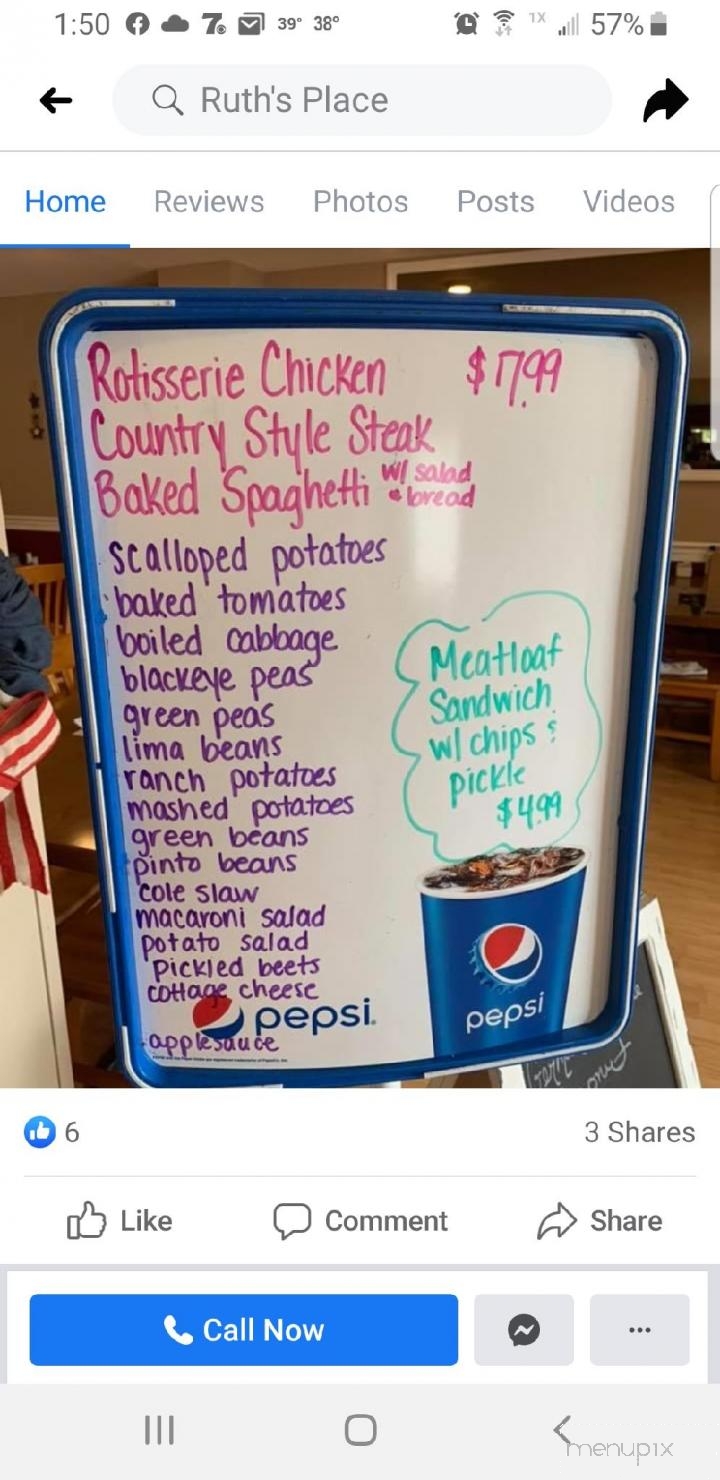 1:50 39° 38° 1X 57%
Ruth's Place
Home Reviews Photos Posts Videos
Rotisserie Chicken $17.99
Country Style Steak
Baked Spaghetti w/ salad & bread
scalloped potatoes
baked tomatoes
boiled cabbage
blackeye peas
green peas
lima beans
ranch potatoes
mashed potatoes
green beans
pinto beans
cole slaw
macaroni salad
potato salad
pickled beets
cottage cheese
applesauce
Meatloaf
Sandwich
w/ chips &
pickle
$4.99
pepsi
pepsi
6 3 Shares
Like Comment Share
Call Now
menupix